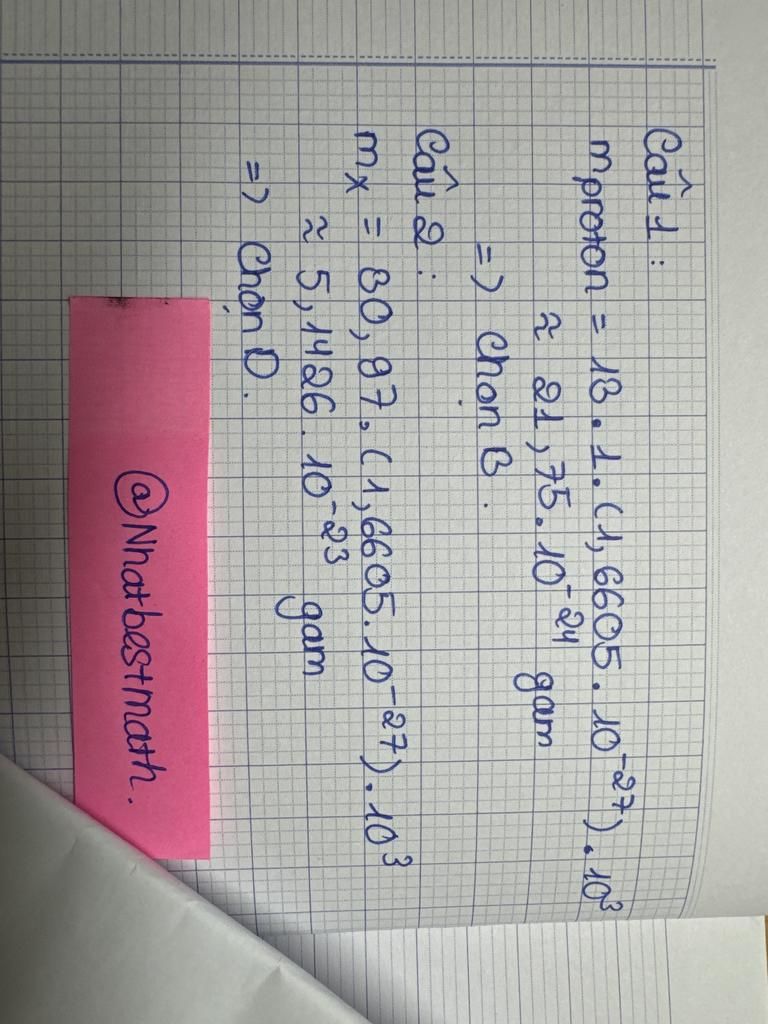 Câu 1 :
mproton = 13 . 1 . (1,6605 . 10⁻²⁷) . 10³
≈ 21,75 . 10⁻²⁴ gam
=> Chọn B .
Câu 2 :
mₓ = 30,97 . (1,6605 . 10⁻²⁷) . 10³
≈ 5,1426 . 10⁻²³ gam
=> Chọn D .
@Nhatbestmath .